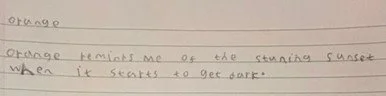 orange
orange remints me of the stuning sunset
when it starts to get dark.